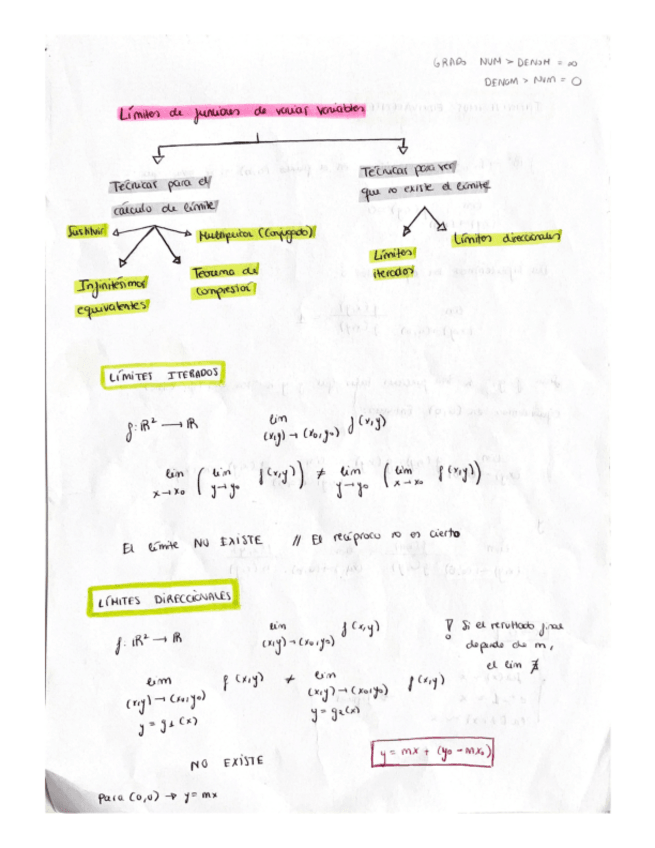 GRADO NUM > DENOM = ∞
DENOM > NUM = 0
Límites de funciones de varias variables
Técnicas para el
cálculo de límite
Técnicas para ver
que no existe el límite
Sustituir
Multiplicar (Conjugado)
Infinitésimos
equivalentes
Teorema de
compresión
Límites
iterados
Límites direccionales
LÍMITES ITERADOS
f: ℝ² → ℝ lim (x,y) → (x₀,y₀) f(x,y)
lim x→x₀ ( lim y→y₀ f(x,y) ) ≠ lim y→y₀ ( lim x→x₀ f(x,y) )
El límite NO EXISTE // El recíproco no es cierto
LÍMITES DIRECCIONALES
f: ℝ² → ℝ lim (x,y) → (x₀,y₀) f(x,y)
! Si el resultado final
depende de m,
el lim ∄
lim (x,y) → (x₀,y₀) y = g₁(x) f(x,y) ≠ lim (x,y) → (x₀,y₀) y = g₂(x) f(x,y)
NO EXISTE
y = mx + (y₀ - mx₀)
para (0,0) → y = mx